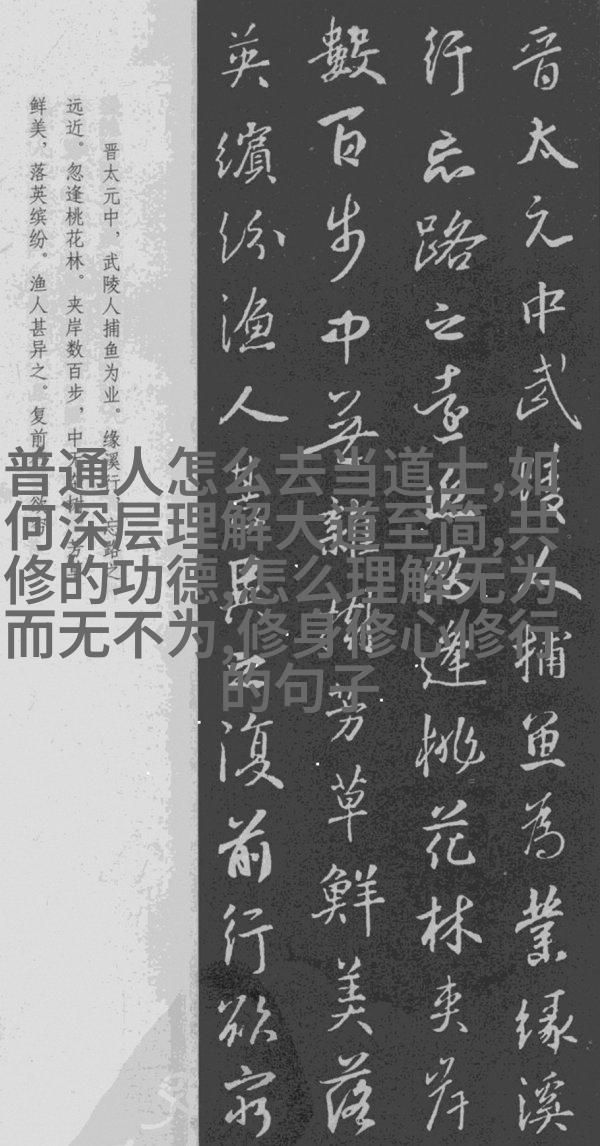 晉太元中武陵人捕魚為業緣溪
行忘路之遠近忽逢桃花林夾岸
數百步中無雜樹芳草鮮美落
英繽紛漁人甚異之復前行欲窮
晋太元中，武陵人捕鱼为业。缘溪行，忘路之
远近。忽逢桃花林。夹岸数百步，中无杂树，芳草
鲜美，落英缤纷。渔人甚异之。复前行，欲穷
普通人怎么去当道士,如
何深层理解大道至简,共
修的功德,怎么理解无为
而无不为,修身修心修行
的句子